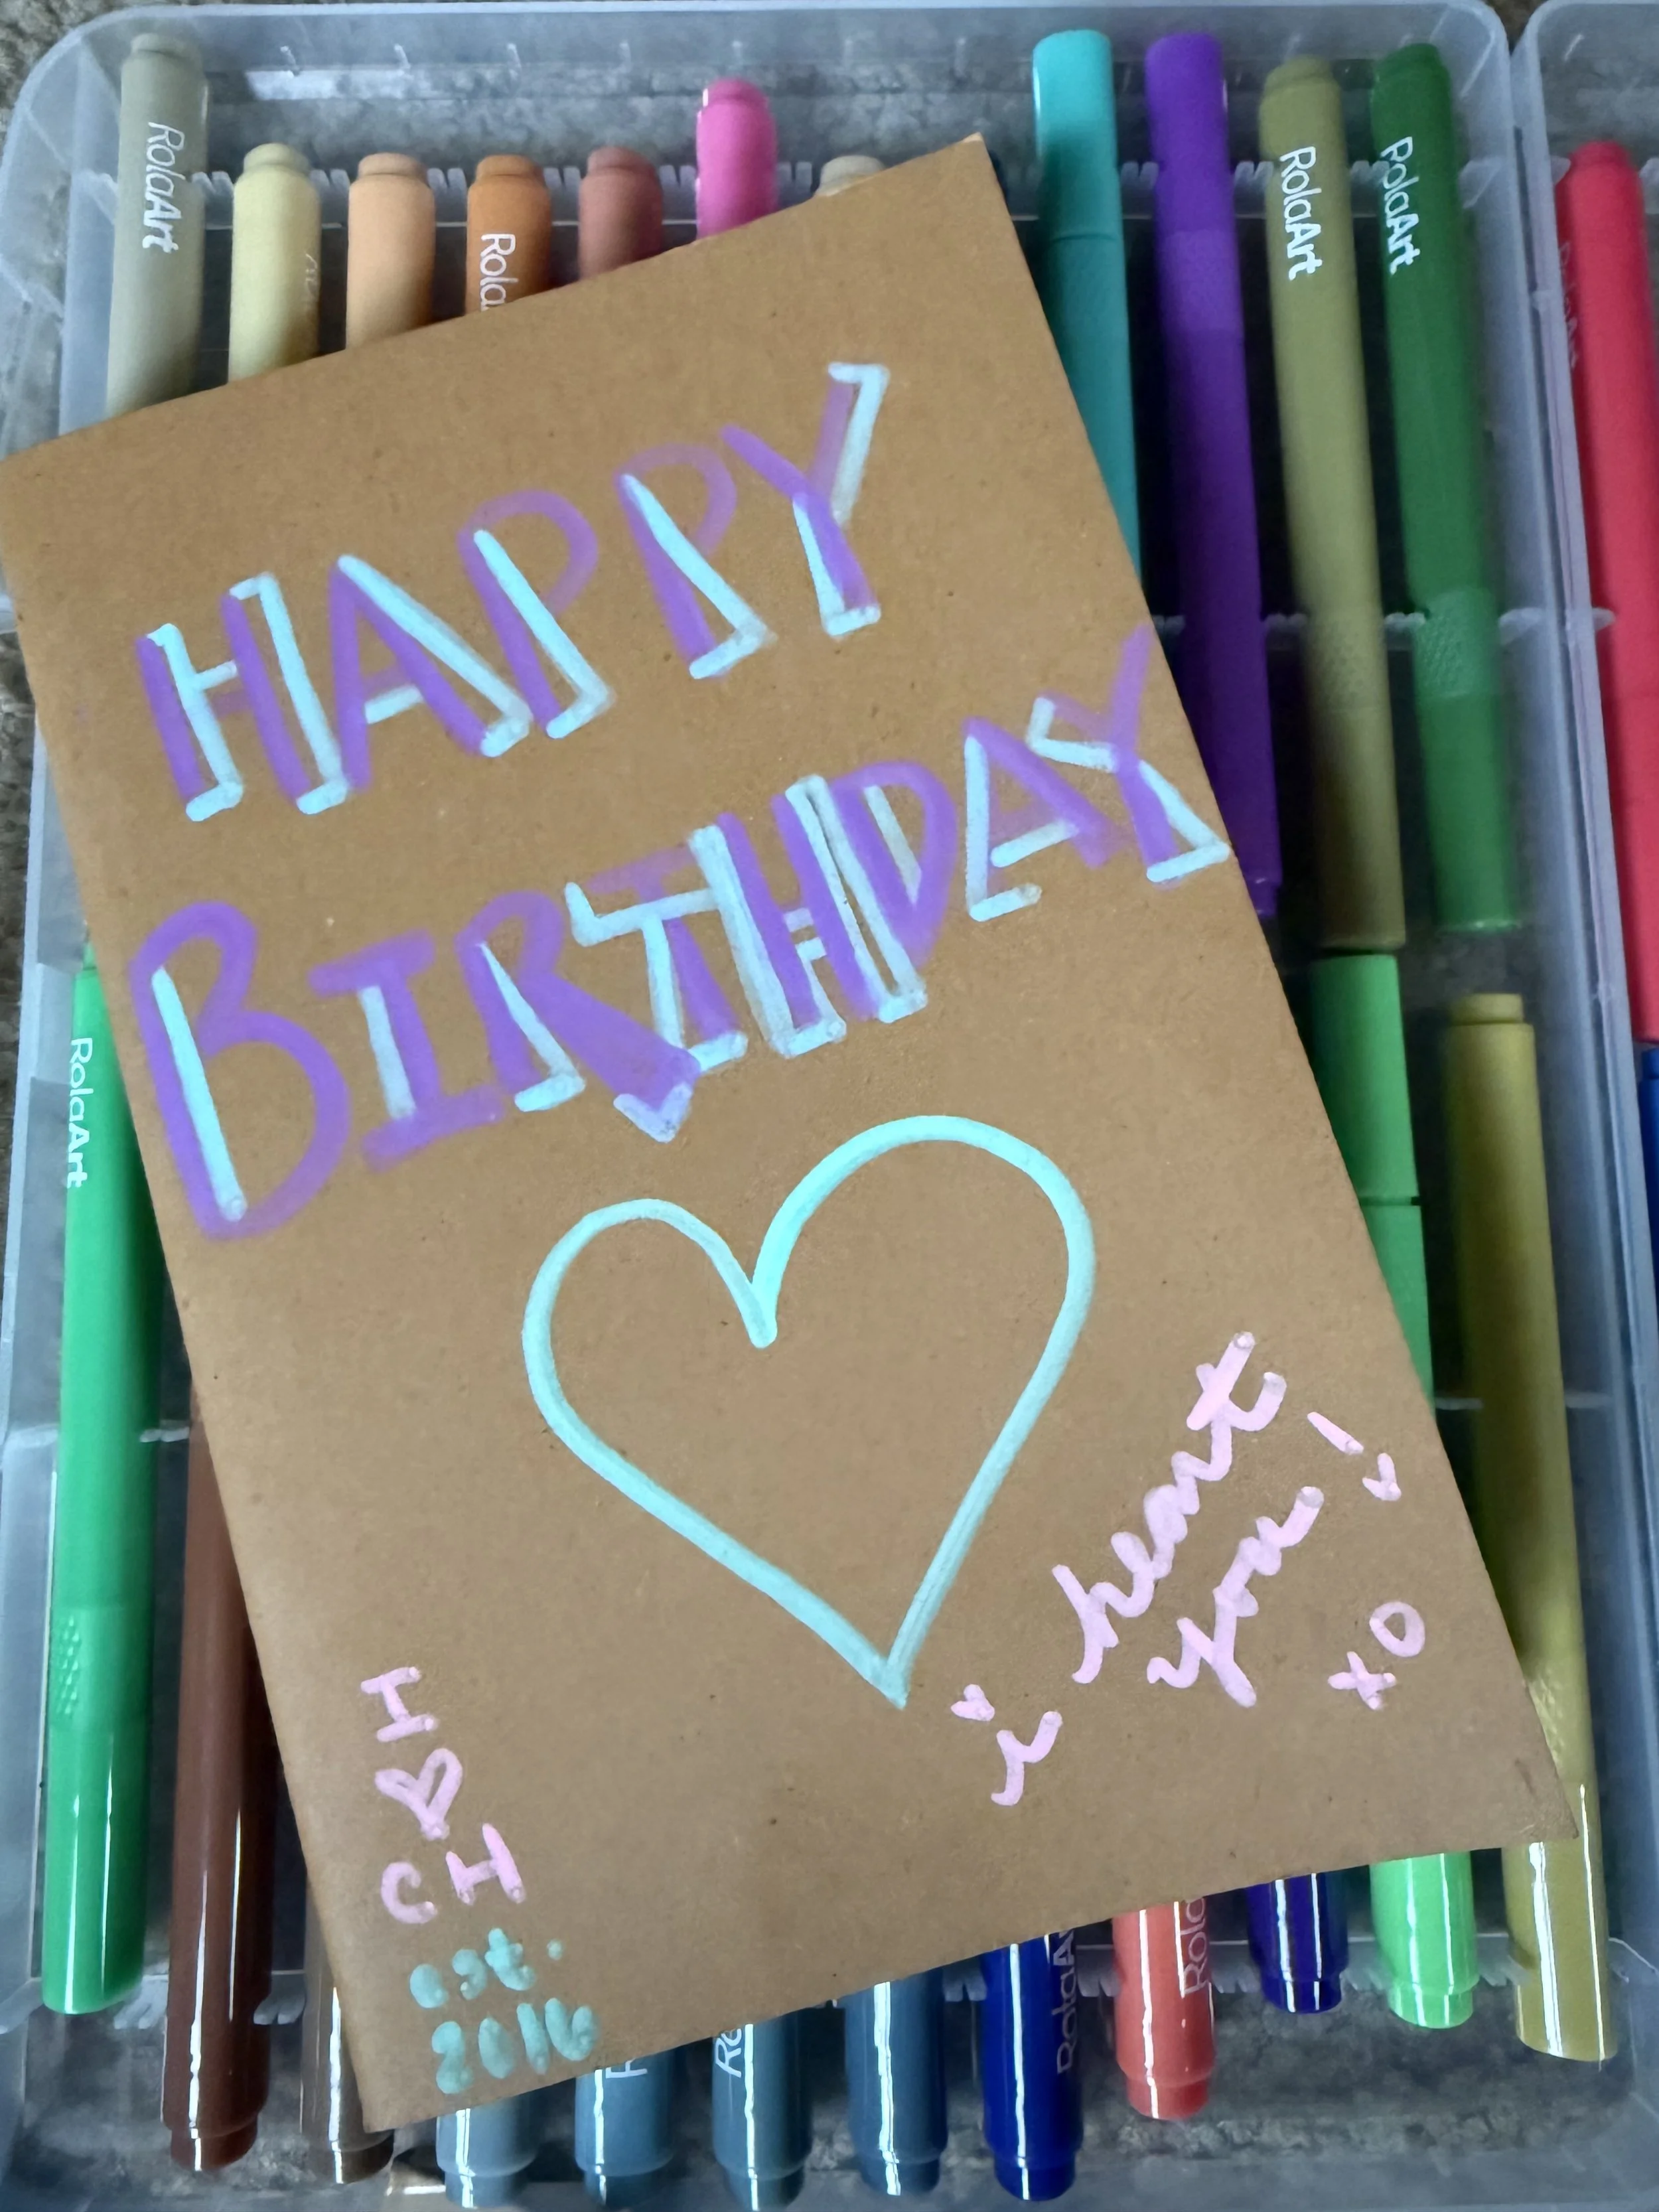 RolaArt
RolaArt
RolaArt
HAPPY
BIRTHDAY
RolaArt
i heart
you!
xo
I ♡
CH
est.
2016